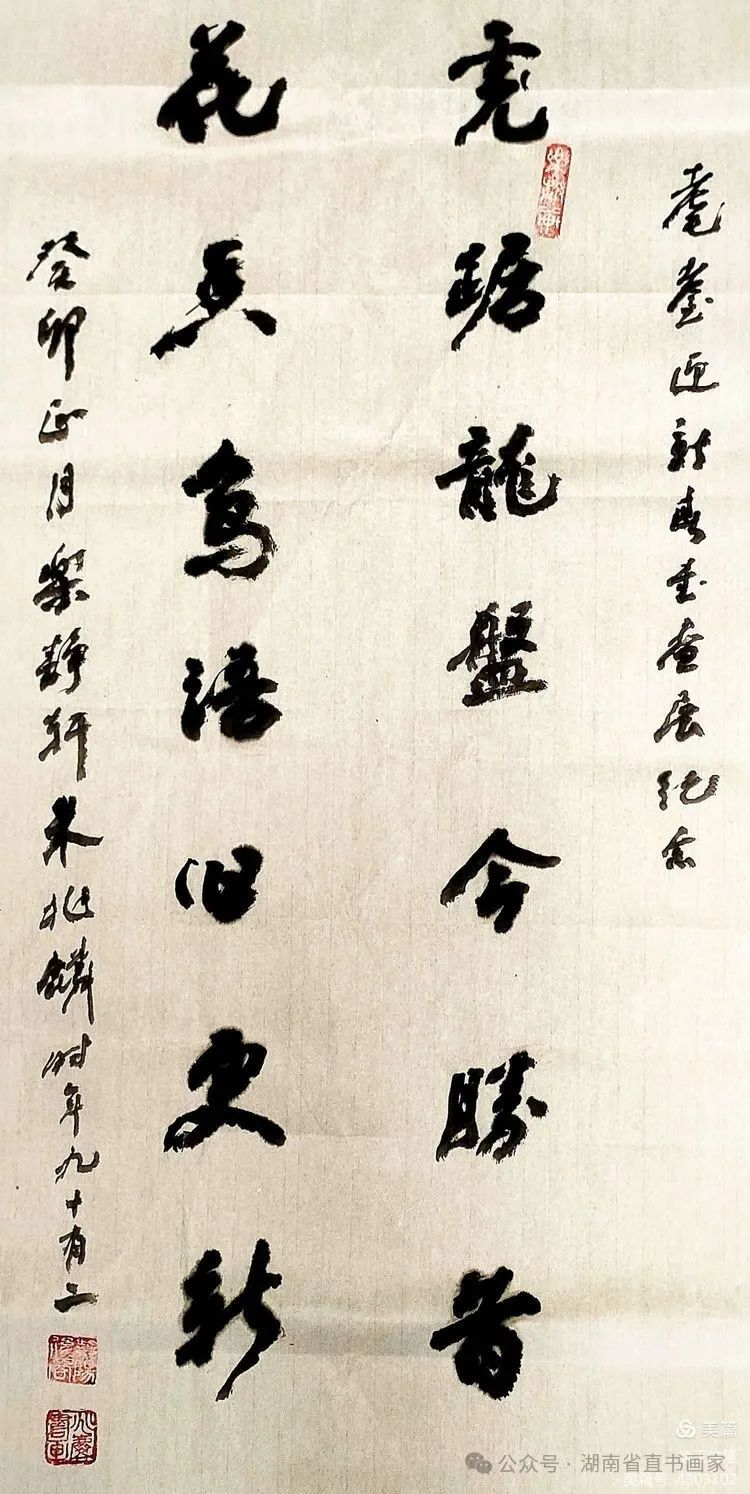 耄耋迎新春书画展纪念
虎踞龍盤今勝昔
花香鸟語旧更新
癸卯正月樂靜軒朱兆麟时年九十有二
美篇
公众号·湖南省直书画家